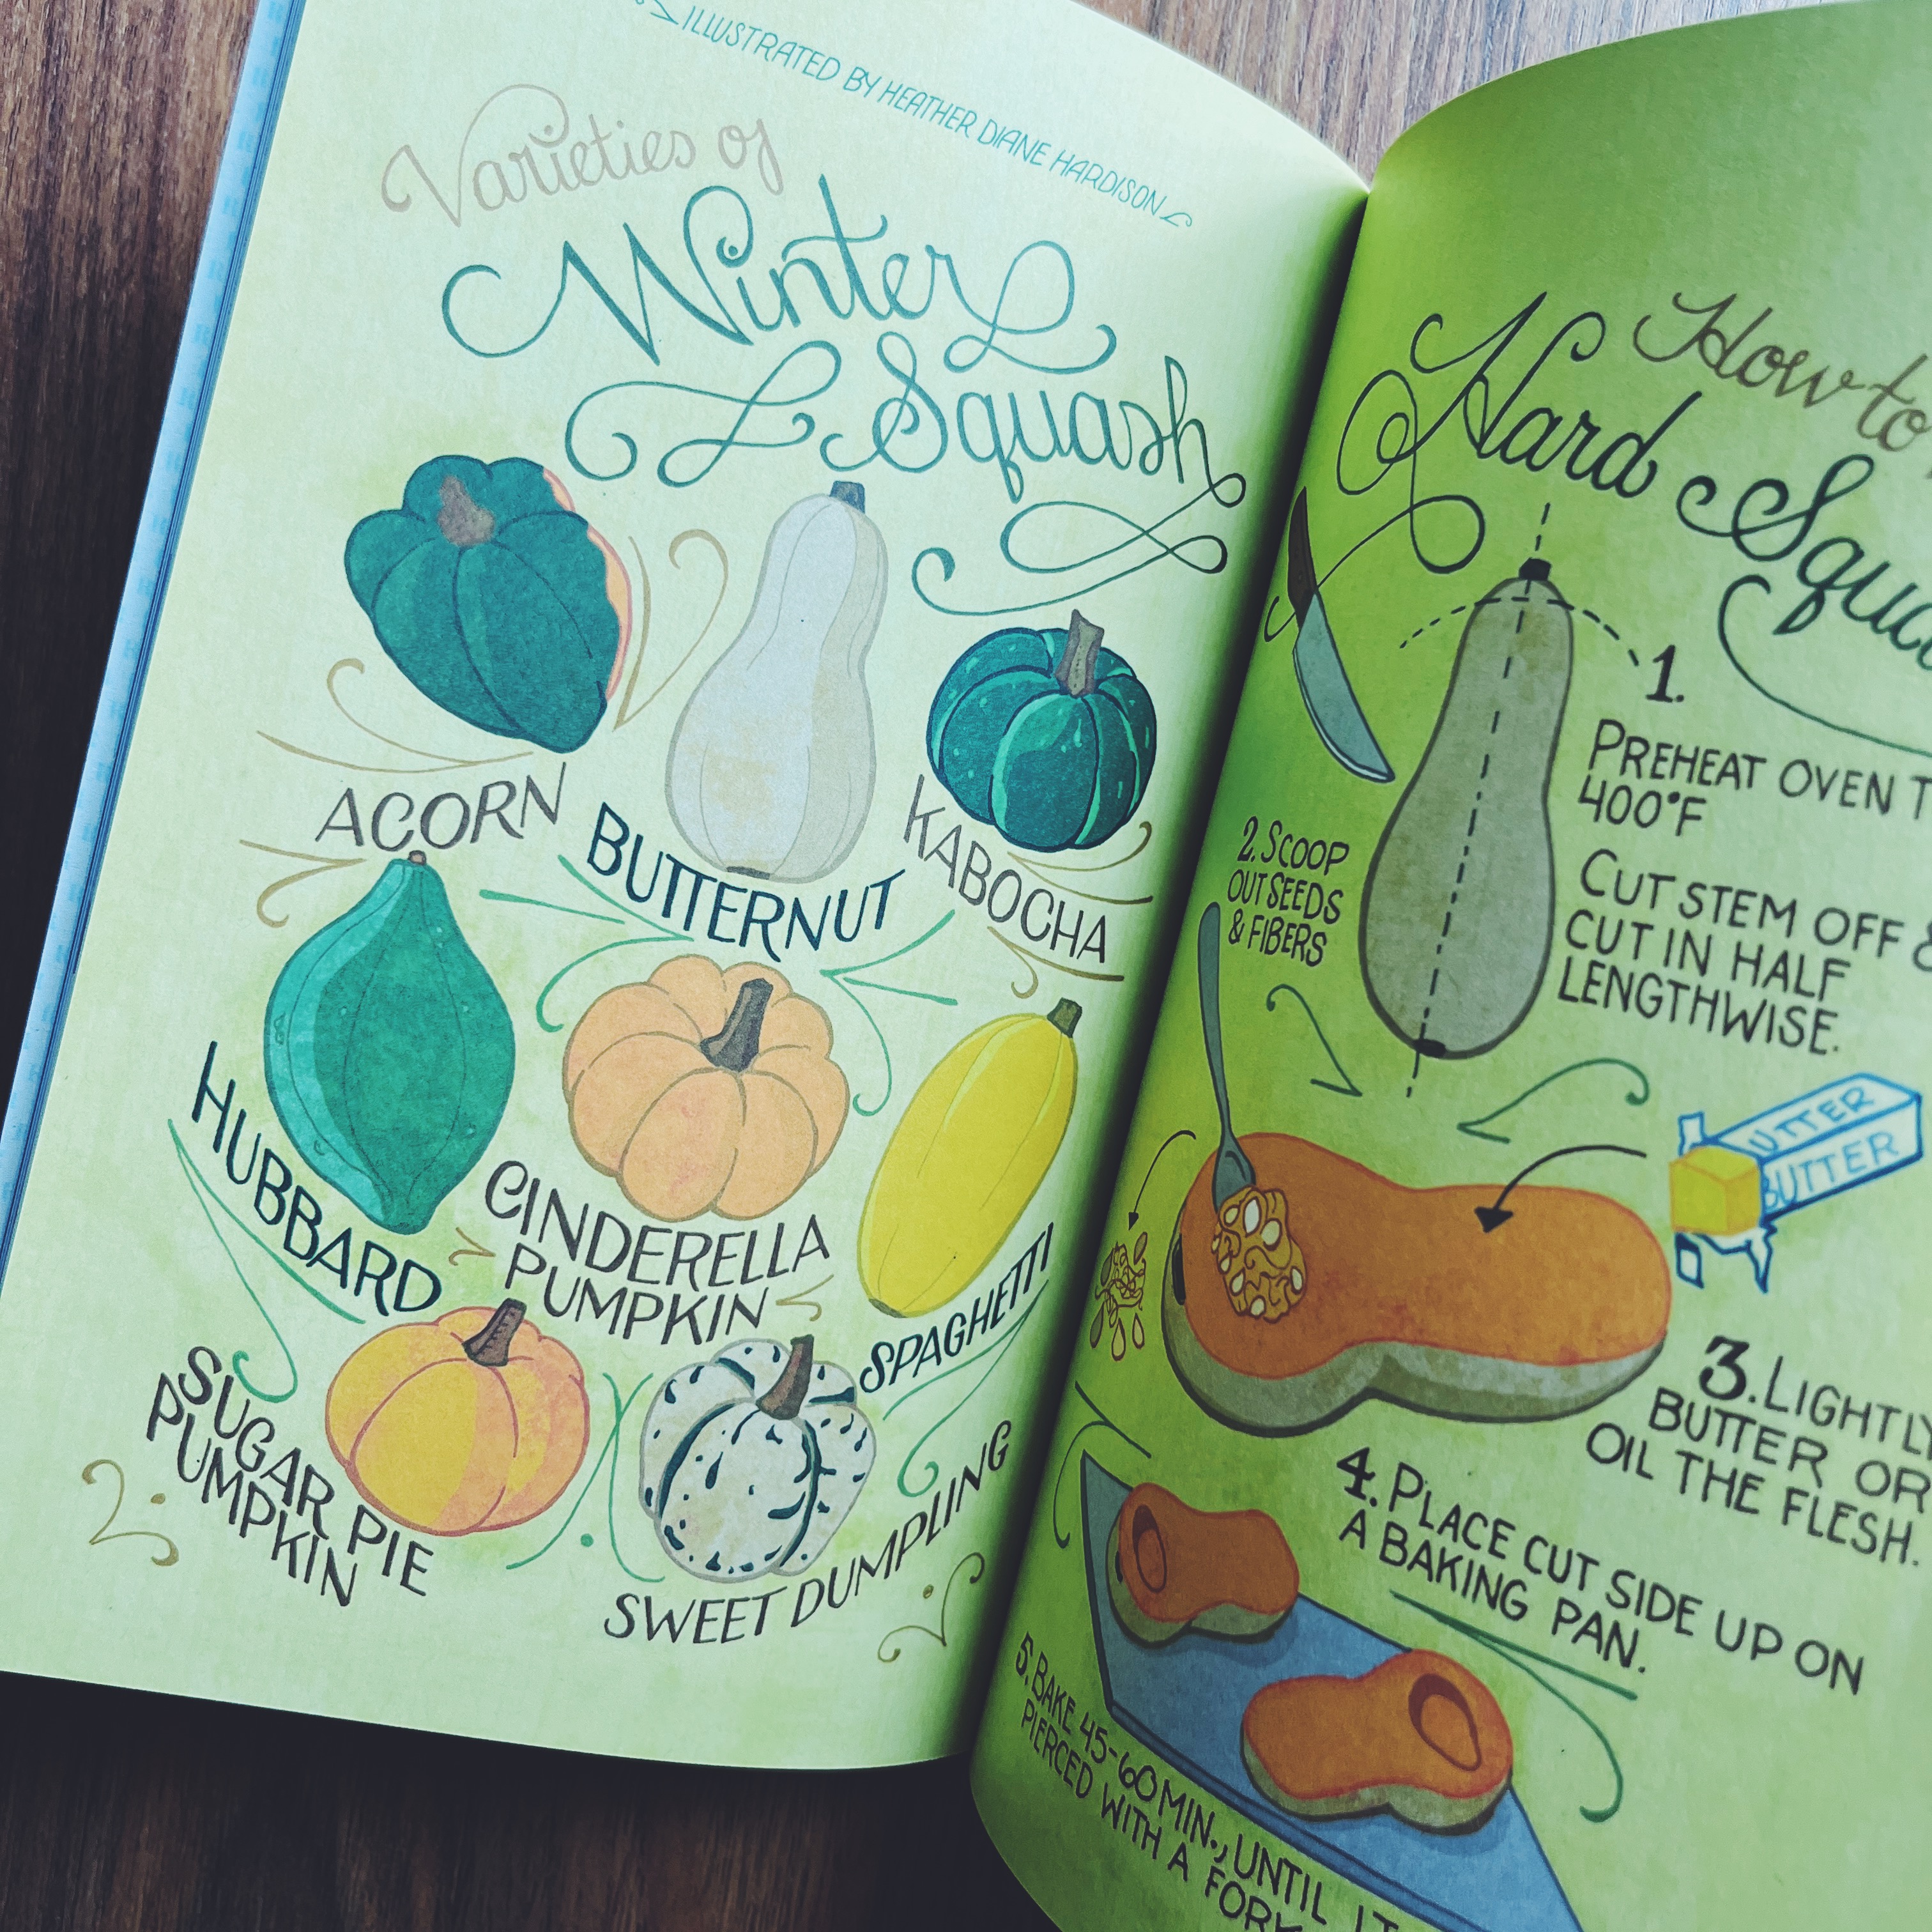 ILLUSTRATED BY HEATHER DIANE HARDISON
Varieties of
Winter
Squash
ACORN
BUTTERNUT
KABOCHA
HUBBARD
CINDERELLA
PUMPKIN
SPAGHETTI
SUGAR PIE
PUMPKIN
SWEET DUMPLING
How to
Hard
1.
PREHEAT OVEN
400°F
CUT STEM OFF &
CUT IN HALF
LENGTHWISE.
2. SCOOP
OUT SEEDS
& FIBERS
BUTTER
3. LIGHTLY
BUTTER OR
OIL THE FLESH.
4. PLACE CUT SIDE UP ON
A BAKING PAN.
5. BAKE 45-60 MIN., UNTIL IT
PIERCED WITH A FORK